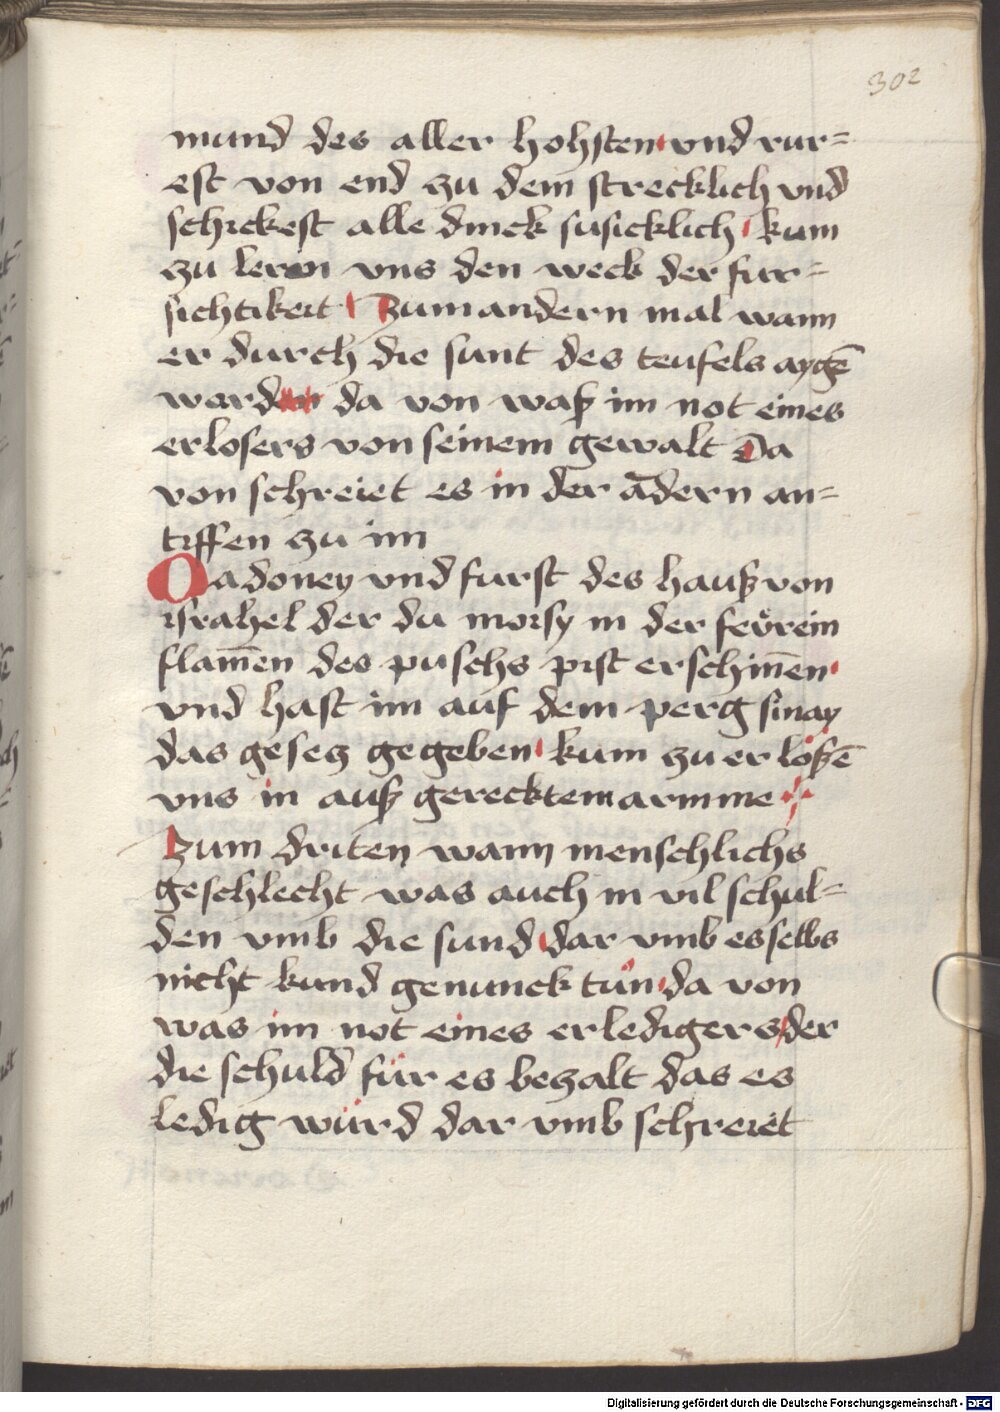 302
mund des aller hohsten vnd rur=
est von end zu dem strecklich vnd
schickest alle dinck susicklich kum
zu leren vns den weck der fur=
sichtikeit Zum andern mal wann
er durch die sunt des teufels aygē
warden da von waß im not eines
erlosers von seinem gewalt Da
von schreiet es in der ādern an=
tiffen zu im
O adoney vnd furst des hauß von
israhel der du moisy in der feu̇rein
flam̄en des puschs pist erschin̄en
vnd hast im auf dem perg sinay
das gesetz gegeben kum zu erlößē
vns in auß gerecktem armme
Zum driten wann menschlichs
geschlecht was auch in vil schul=
den vmb die sund dar vmb es selbs
nicht kund genunck tůn da von
was im not eines erledigers der
die schuld für es bezalt das es
ledig würd dar vmb schreiet
Digitalisierung gefördert durch die Deutsche Forschungsgemeinschaft - DFG